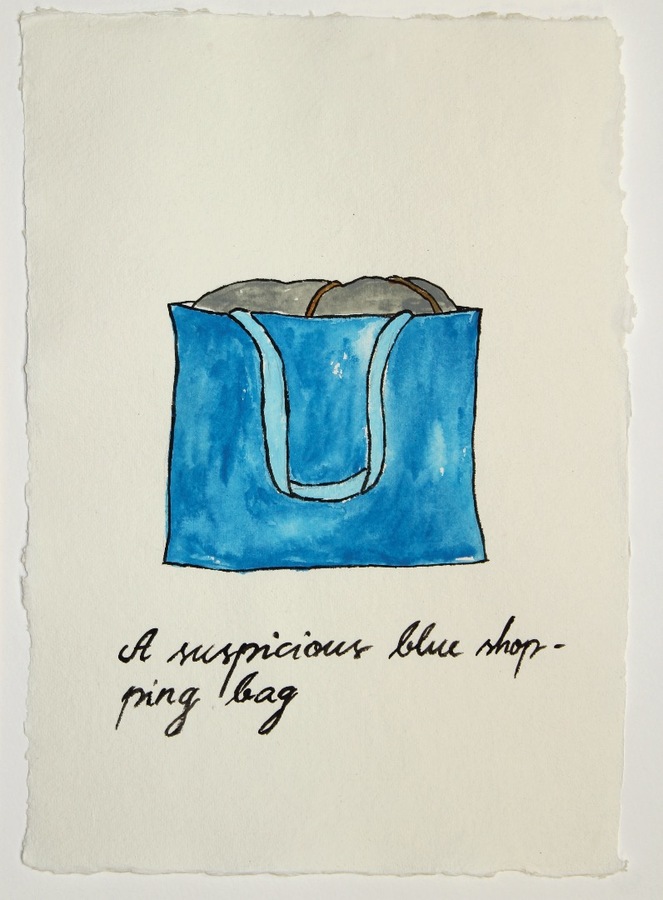 A suspicious blue shop-
ping bag